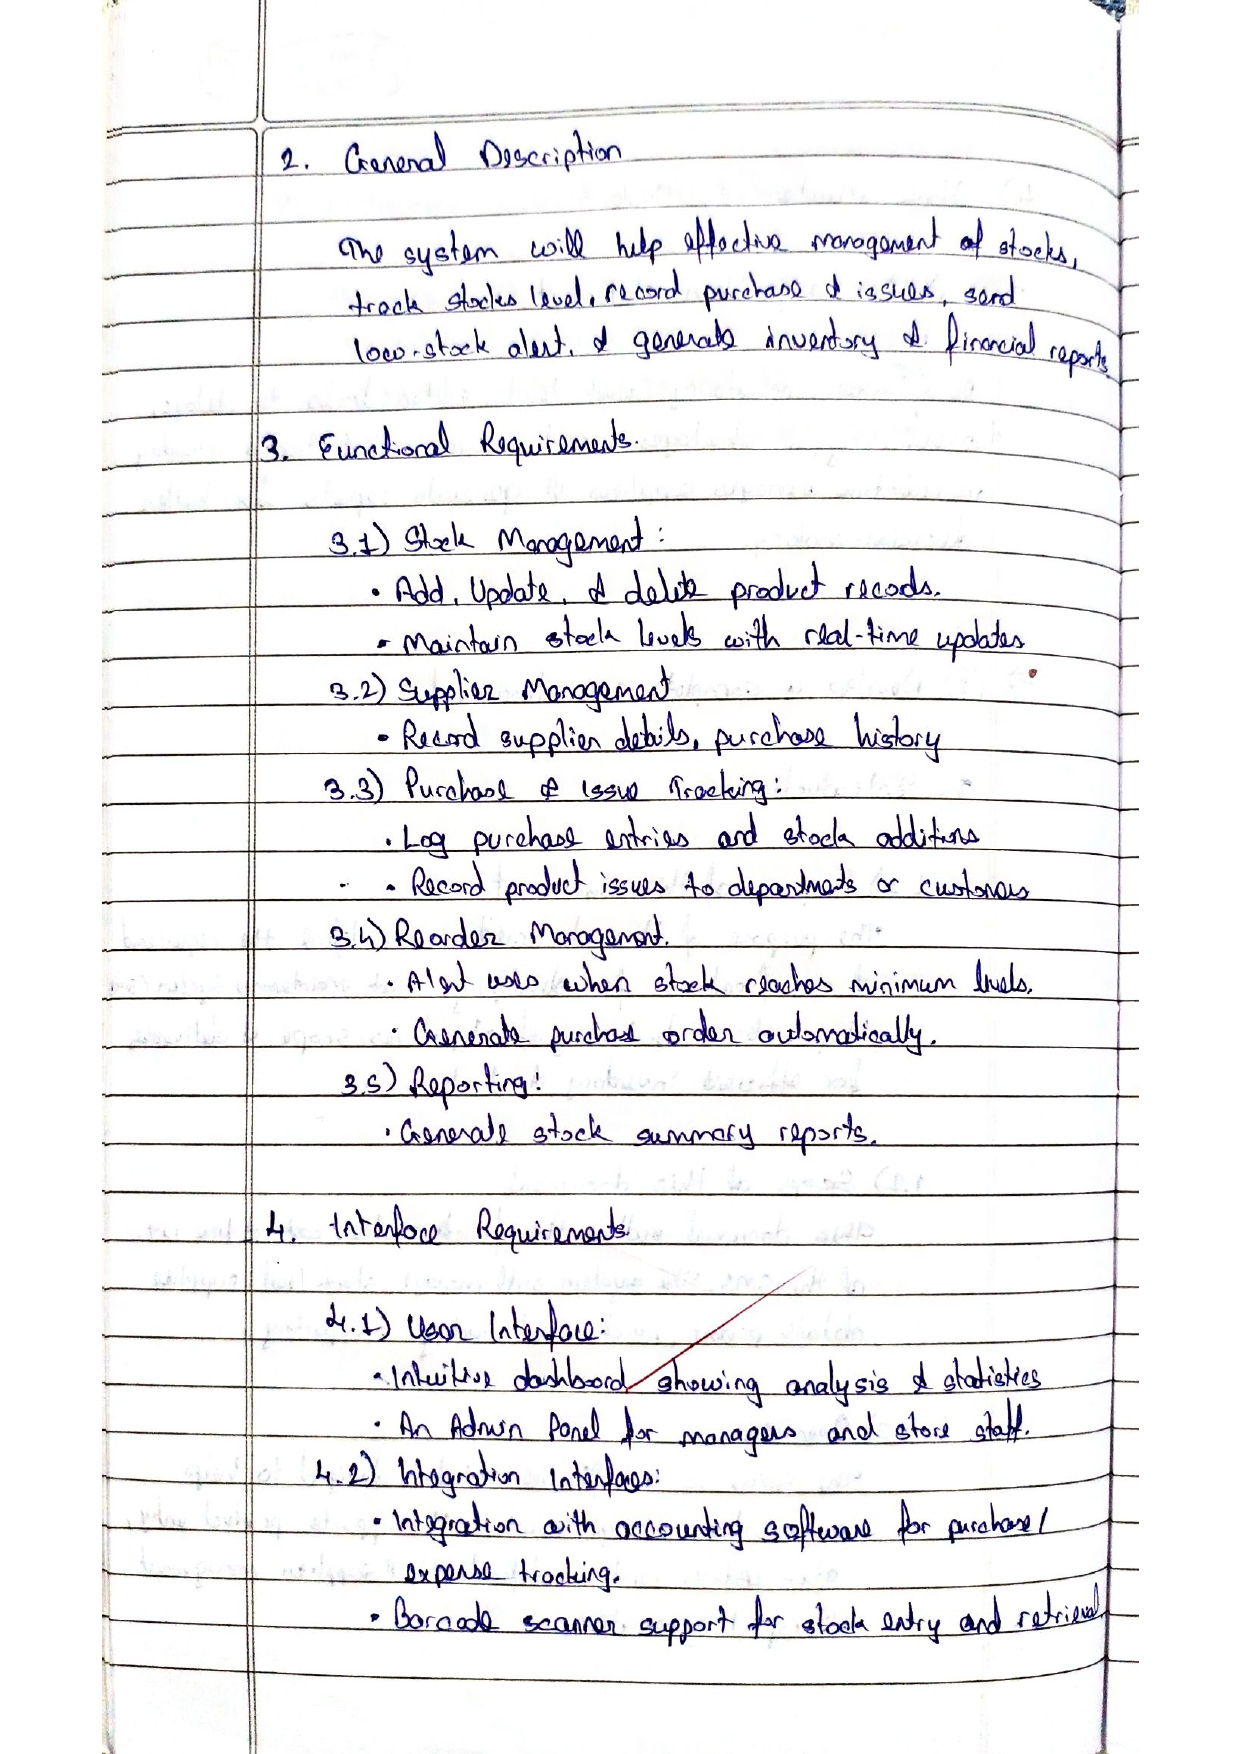 2. General Description
The system will help effective management of stocks,
track stocks level, record purchase & issues, send
low-stock alert, & generate inventory & financial reports.
3. Functional Requirements.
3.1) Stock Management:
• Add, Update, & delete product records.
• Maintain stock levels with real-time updates
3.2) Supplier Management
• Record supplier details, purchase history
3.3) Purchase & Issue Tracking:
• Log purchase entries and stock additions
• Record product issues to departments or customers
3.4) Reorder Management.
• Alert uses when stock reaches minimum levels.
• Generate purchase order automatically.
3.5) Reporting:
• Generate stock summary reports.
4. Interface Requirements.
4.1) User Interface:
• Intuitive dashboard showing analysis & statistics
• An Admin Panel for managers and store staff.
4.2) Integration Interfaces:
• Integration with accounting software for purchase/
expense tracking.
• Barcode scanner support for stock entry and retrieval